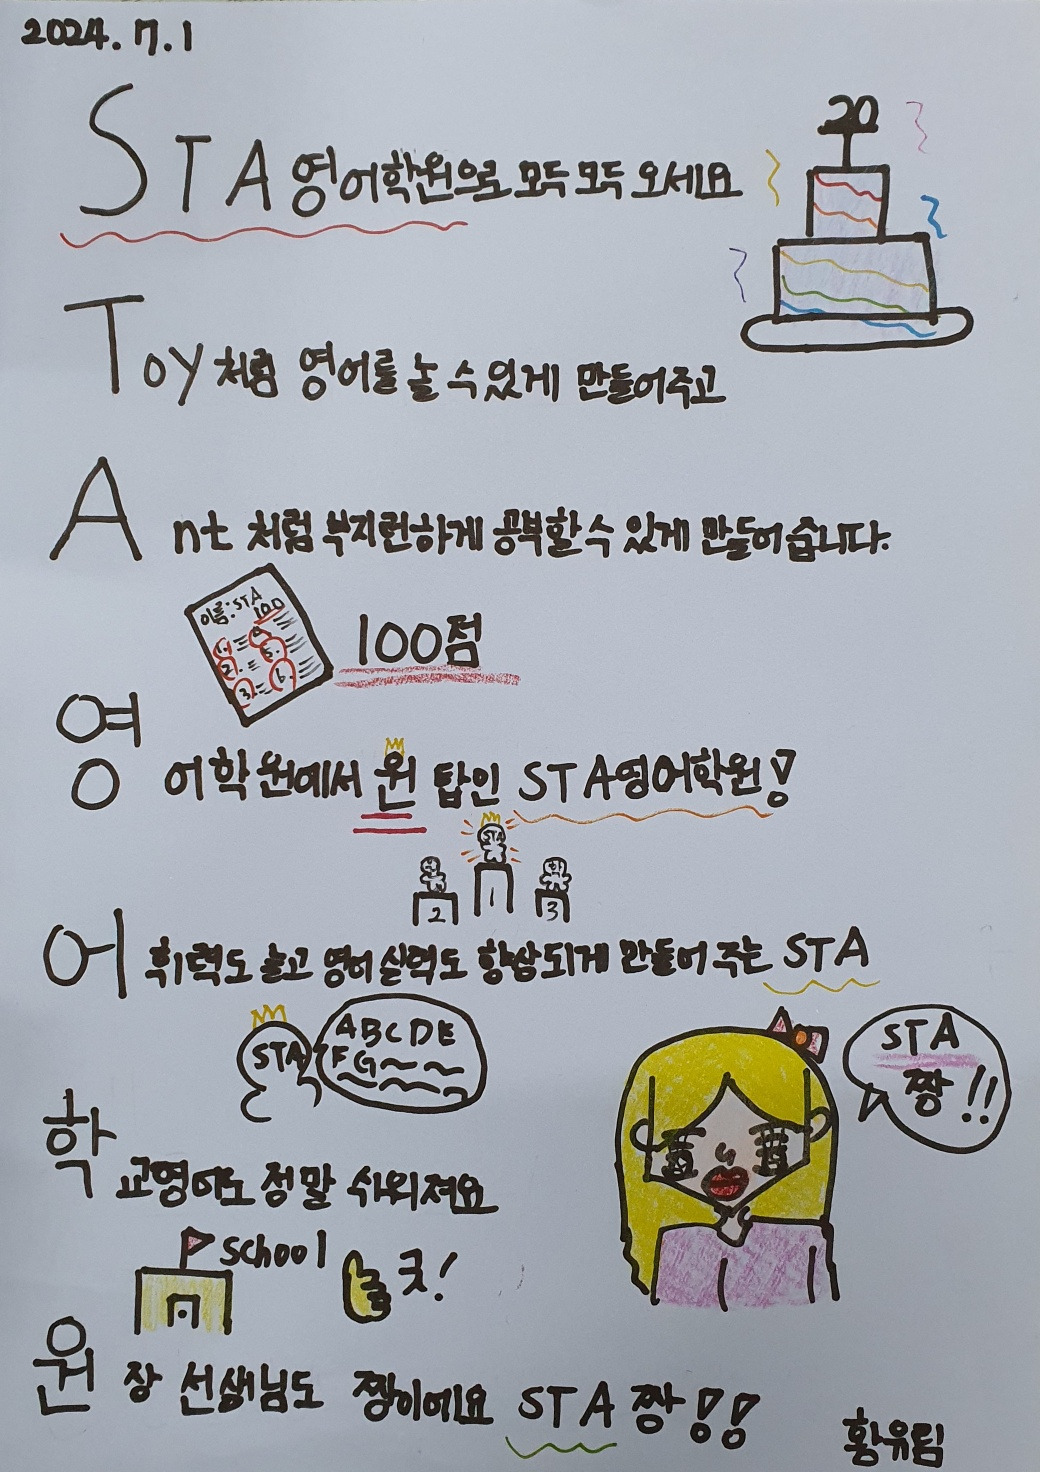 2024.7.1
20
STA 영어학원으로 모두 모두 오세요
Toy처럼 영어를 놀 수 있게 만들어주고
Ant 처럼 부지런하게 공부할 수 있게 만들어 줍니다.
이름:STA
100
1.
4.
2.
5.
3.
6.
100점
영어학원에서 원 탑인 STA영어학원!
STA
2
1
3
어휘력도 늘고 영어 실력도 향상되게 만들어 주는 STA
STA
ABCDE
FG~~
STA
짱!!
학교영어도 정말 쉬워져요
school
굿!
원장 선생님도 짱이에요 STA 짱!!
황유림